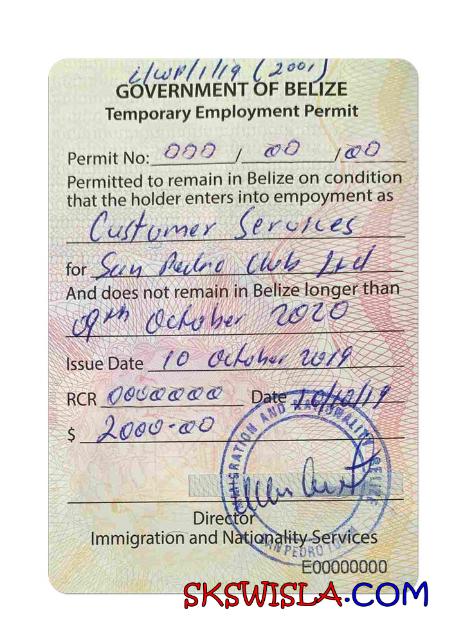 i/WP/1/19 (2001)
GOVERNMENT OF BELIZE
Temporary Employment Permit
Permit No: 000 / 00 /00
Permitted to remain in Belize on condition
that the holder enters into empoyment as
Customer Services
for San Pedro Club Ltd
And does not remain in Belize longer than
09th October 2020
Issue Date 10 October 2019
RCR 0000000 Date 10/10/19
$ 2000-00
IMMIGRATION AND NATIONALITY BELIZE
SAN PEDRO TOWN
Director
Immigration and Nationality Services
E00000000
SKSWISLA.COM